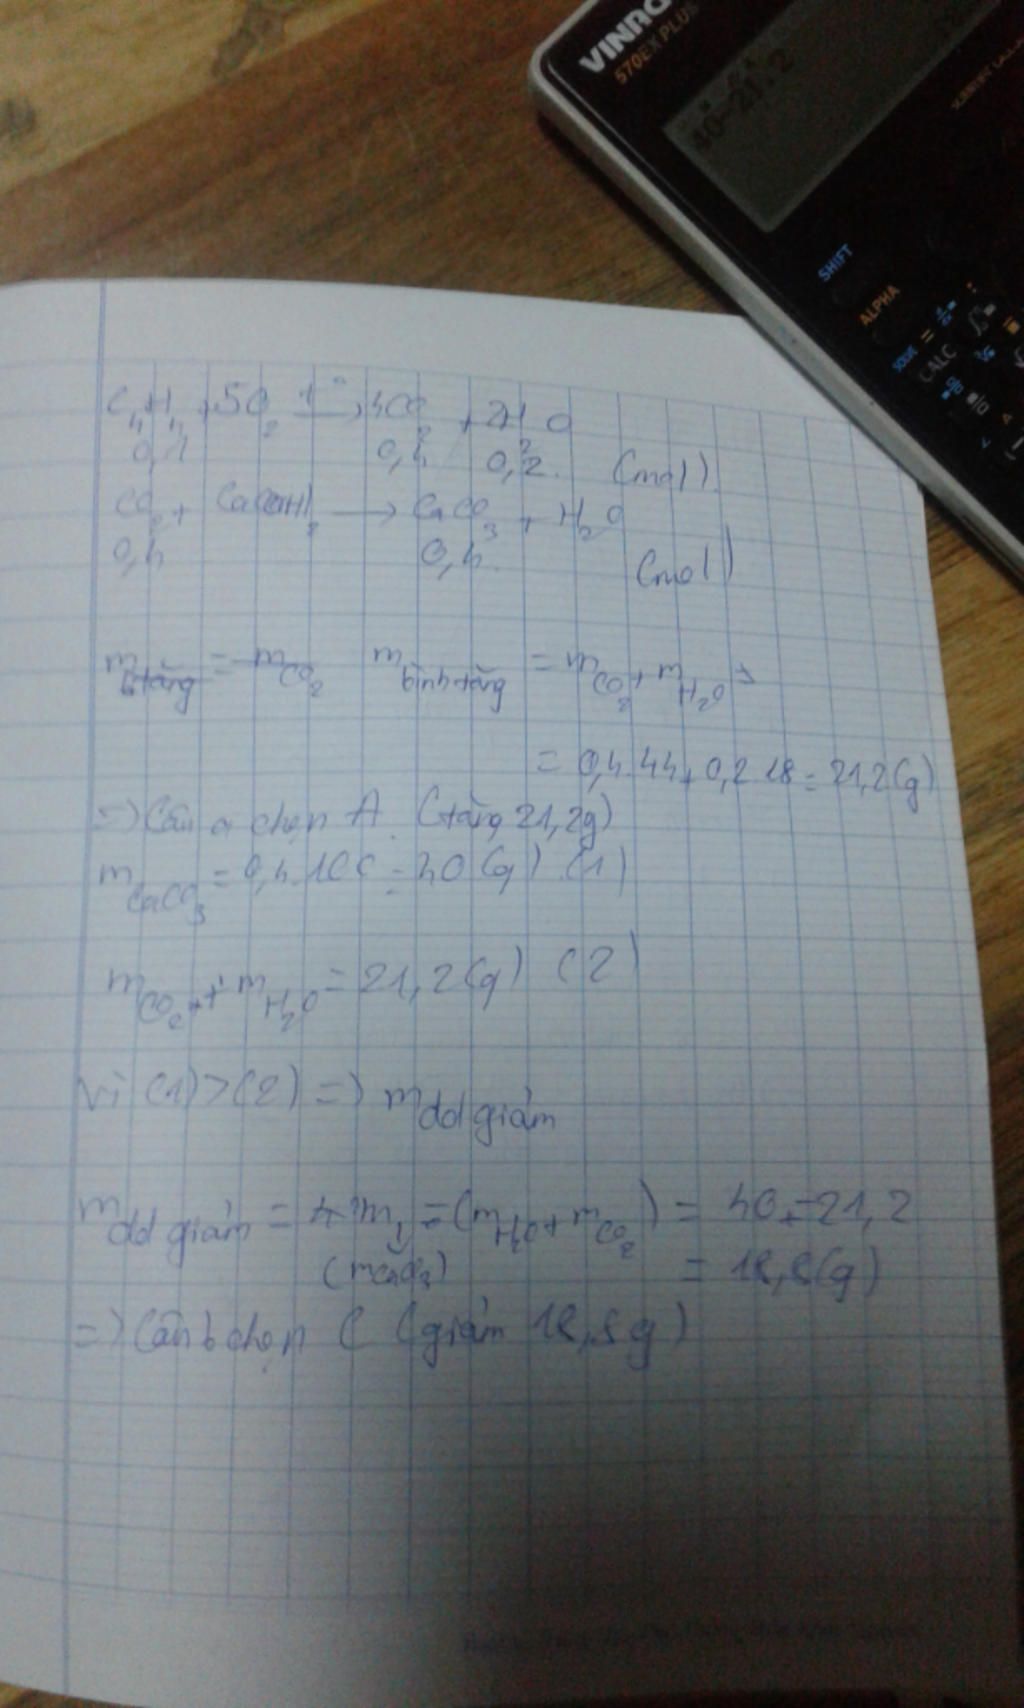 VINAC
570EX PLUS
40-21.2
SHIFT
ALPHA
SOLVE
CALC
C₄H₄ + 5O₂ t° → 4CO₂ + 2H₂O
0,1 0,4 0,2 (mol)
CO₂ + Ca(OH)₂ → CaCO₃ + H₂O
0,4 0,4 (mol)
m b tăng = m CO₂ m bình tăng = m CO₂ + m H₂O =
= 0,4.44 + 0,2.18 = 21,2(g)
=> Câu a chọn A (tăng 21,2g)
m CaCO₃ = 0,4.100 = 40(g) (1)
m CO₂ + m H₂O = 21,2(g) (2)
Vì (1) > (2) => m dd giảm
m dd giảm = m₁ - (m H₂O + m CO₂) = 40 - 21,2
(m CaCO₃) = 18,8(g)
=> Câu b chọn C (giảm 18,8g)